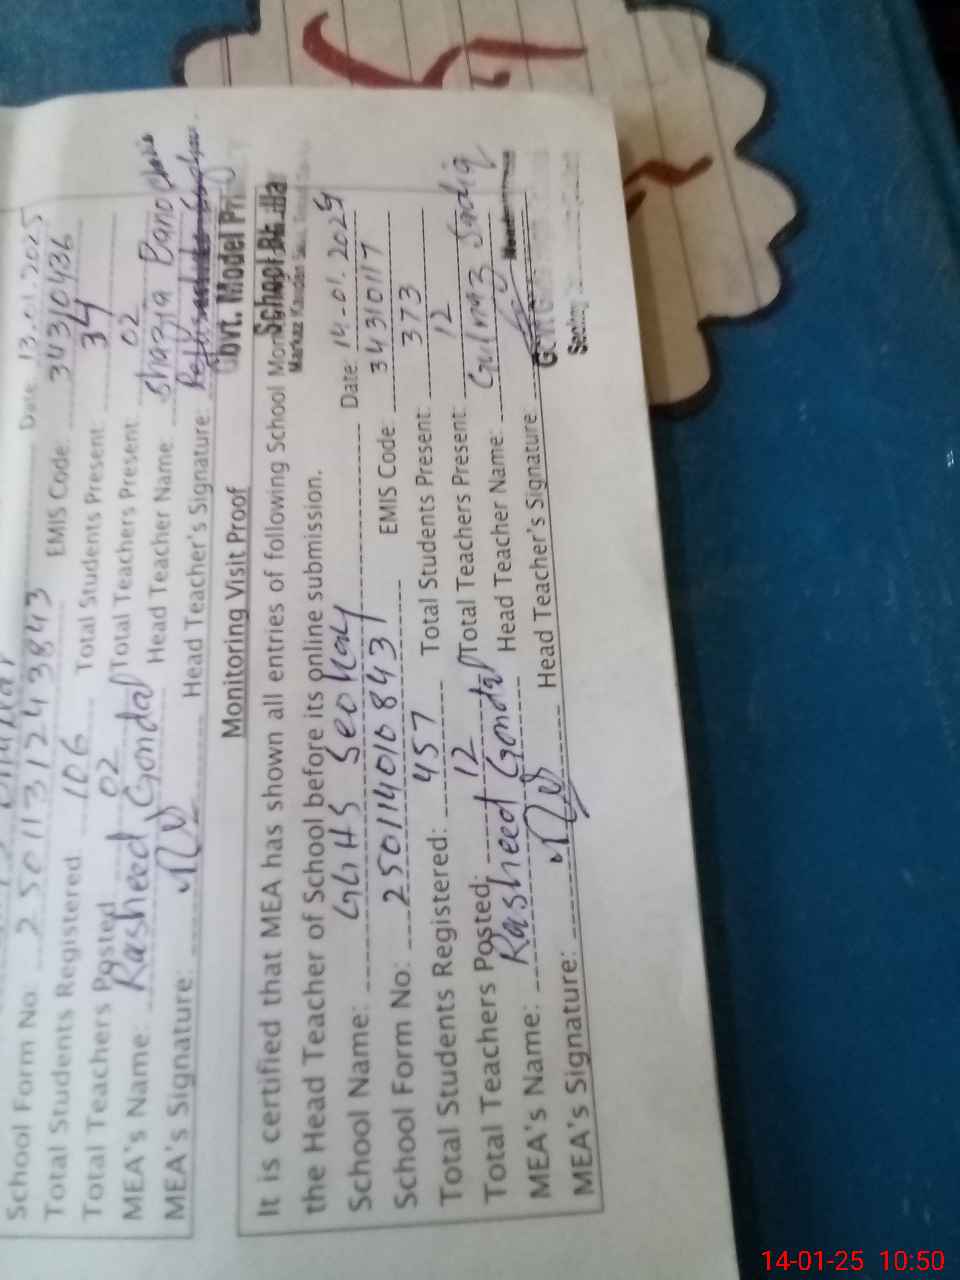 School Form No: 250113124 3843 EMIS Code: 34310436
Date 13.01.2025
Total Students Registered 106 Total Students Present: 34
Total Teachers Posted 02 Total Teachers Present 02
MEA's Name: Rasheed Gondal Head Teacher Name: Shazia Bano
MEA's Signature Head Teacher's Signature:
Govt. Model Pri
School
Monitoring Visit Proof
It is certified that MEA has shown all entries of following School Mon
the Head Teacher of School before its online submission.
School Name: GGHS Seohay Date: 14-01.2025
School Form No: 2501140108431 EMIS Code: 34310117
Total Students Registered: 457 Total Students Present: 373
Total Teachers Posted: 12 Total Teachers Present: 12
MEA's Name: Rasheed Gondal Head Teacher Name: Gulnaz Sadiq
MEA's Signature: Head Teacher's Signature:
14-01-25 10:50